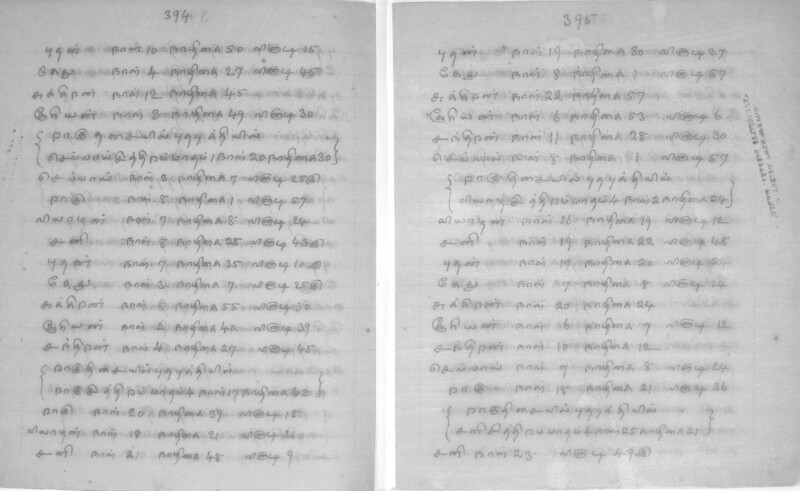 394
புதன் நாள் 10 நாழிகை 50 வினாடி 15
கேது நாள் 4 நாழிகை 27 வினாடி 45
சுக்கிரன் நாள் 12 நாழிகை 45
சூரியன் நாள் 3 நாழிகை 49 வினாடி 30
ராகு திசையில் புதபுத்தியில்
செவ்வாய் சித்திரம் மாதம் 1 நாள் 20 நாழிகை 30
செவ்வாய் நாள் 2 நாழிகை 7 வினாடி
ராகு நாள் நாழிகை 1 வினாடி 57
வியாழன் நாள் 7 நாழிகை 8 வினாடி 24
சனி நாள் 8 நாழிகை 28 வினாடி
புதன் நாள் 7 நாழிகை 35 வினாடி
கேது நாள் 3 நாழிகை 7 வினாடி
சுக்கிரன் நாள் நாழிகை 55 வினாடி 30
சூரியன் நாள் 2 நாழிகை 40 வினாடி 39
சந்திரன் நாள் 4 நாழிகை 27 வினாடி 45
ராகு திசையில் புதபுத்தியில்
ராகு சித்திரம் மாதம் 4 நாள் 17 நாழிகை 42
ராகு நாள் 20 நாழிகை 39 வினாடி 18
வியாழன் நாள் 18 நாழிகை 21 வினாடி 36
சனி நாள் 21 நாழிகை 48 வினாடி 9
395
புதன் நாள் 19 நாழிகை 30 வினாடி 27
கேது நாள் 8 நாழிகை 1 வினாடி 57
சுக்கிரன் நாள் 22 நாழிகை 57
சூரியன் நாள் 6 நாழிகை 53 வினாடி 6
சந்திரன் நாள் 11 நாழிகை 28 வினாடி 30
செவ்வாய் நாள் 8 நாழிகை 1 வினாடி 57
ராகு திசையில் புதபுத்தியில்
வியாழ சித்திரம் மாதம் 4 நாள் 2 நாழிகை 24
வியாழன் நாள் 16 நாழிகை 19 வினாடி 12
சனி நாள் 19 நாழிகை 22 வினாடி 48
புதன் நாள் 17 நாழிகை 20 வினாடி
கேது நாள் 7 நாழிகை 8 வினாடி 24
சுக்கிரன் நாள் 20 நாழிகை 24
சூரியன் நாள் 6 நாழிகை 7 வினாடி 12
சந்திரன் நாள் 10 நாழிகை 12
செவ்வாய் நாள் 7 நாழிகை 8 வினாடி 24
ராகு நாள் 18 நாழிகை 21 வினாடி 36
ராகு திசையில் புதபுத்தியில்
சனி சித்திரம் மாதம் 4 நாள் 25 நாழிகை 21
சனி நாள் 23 வினாடி